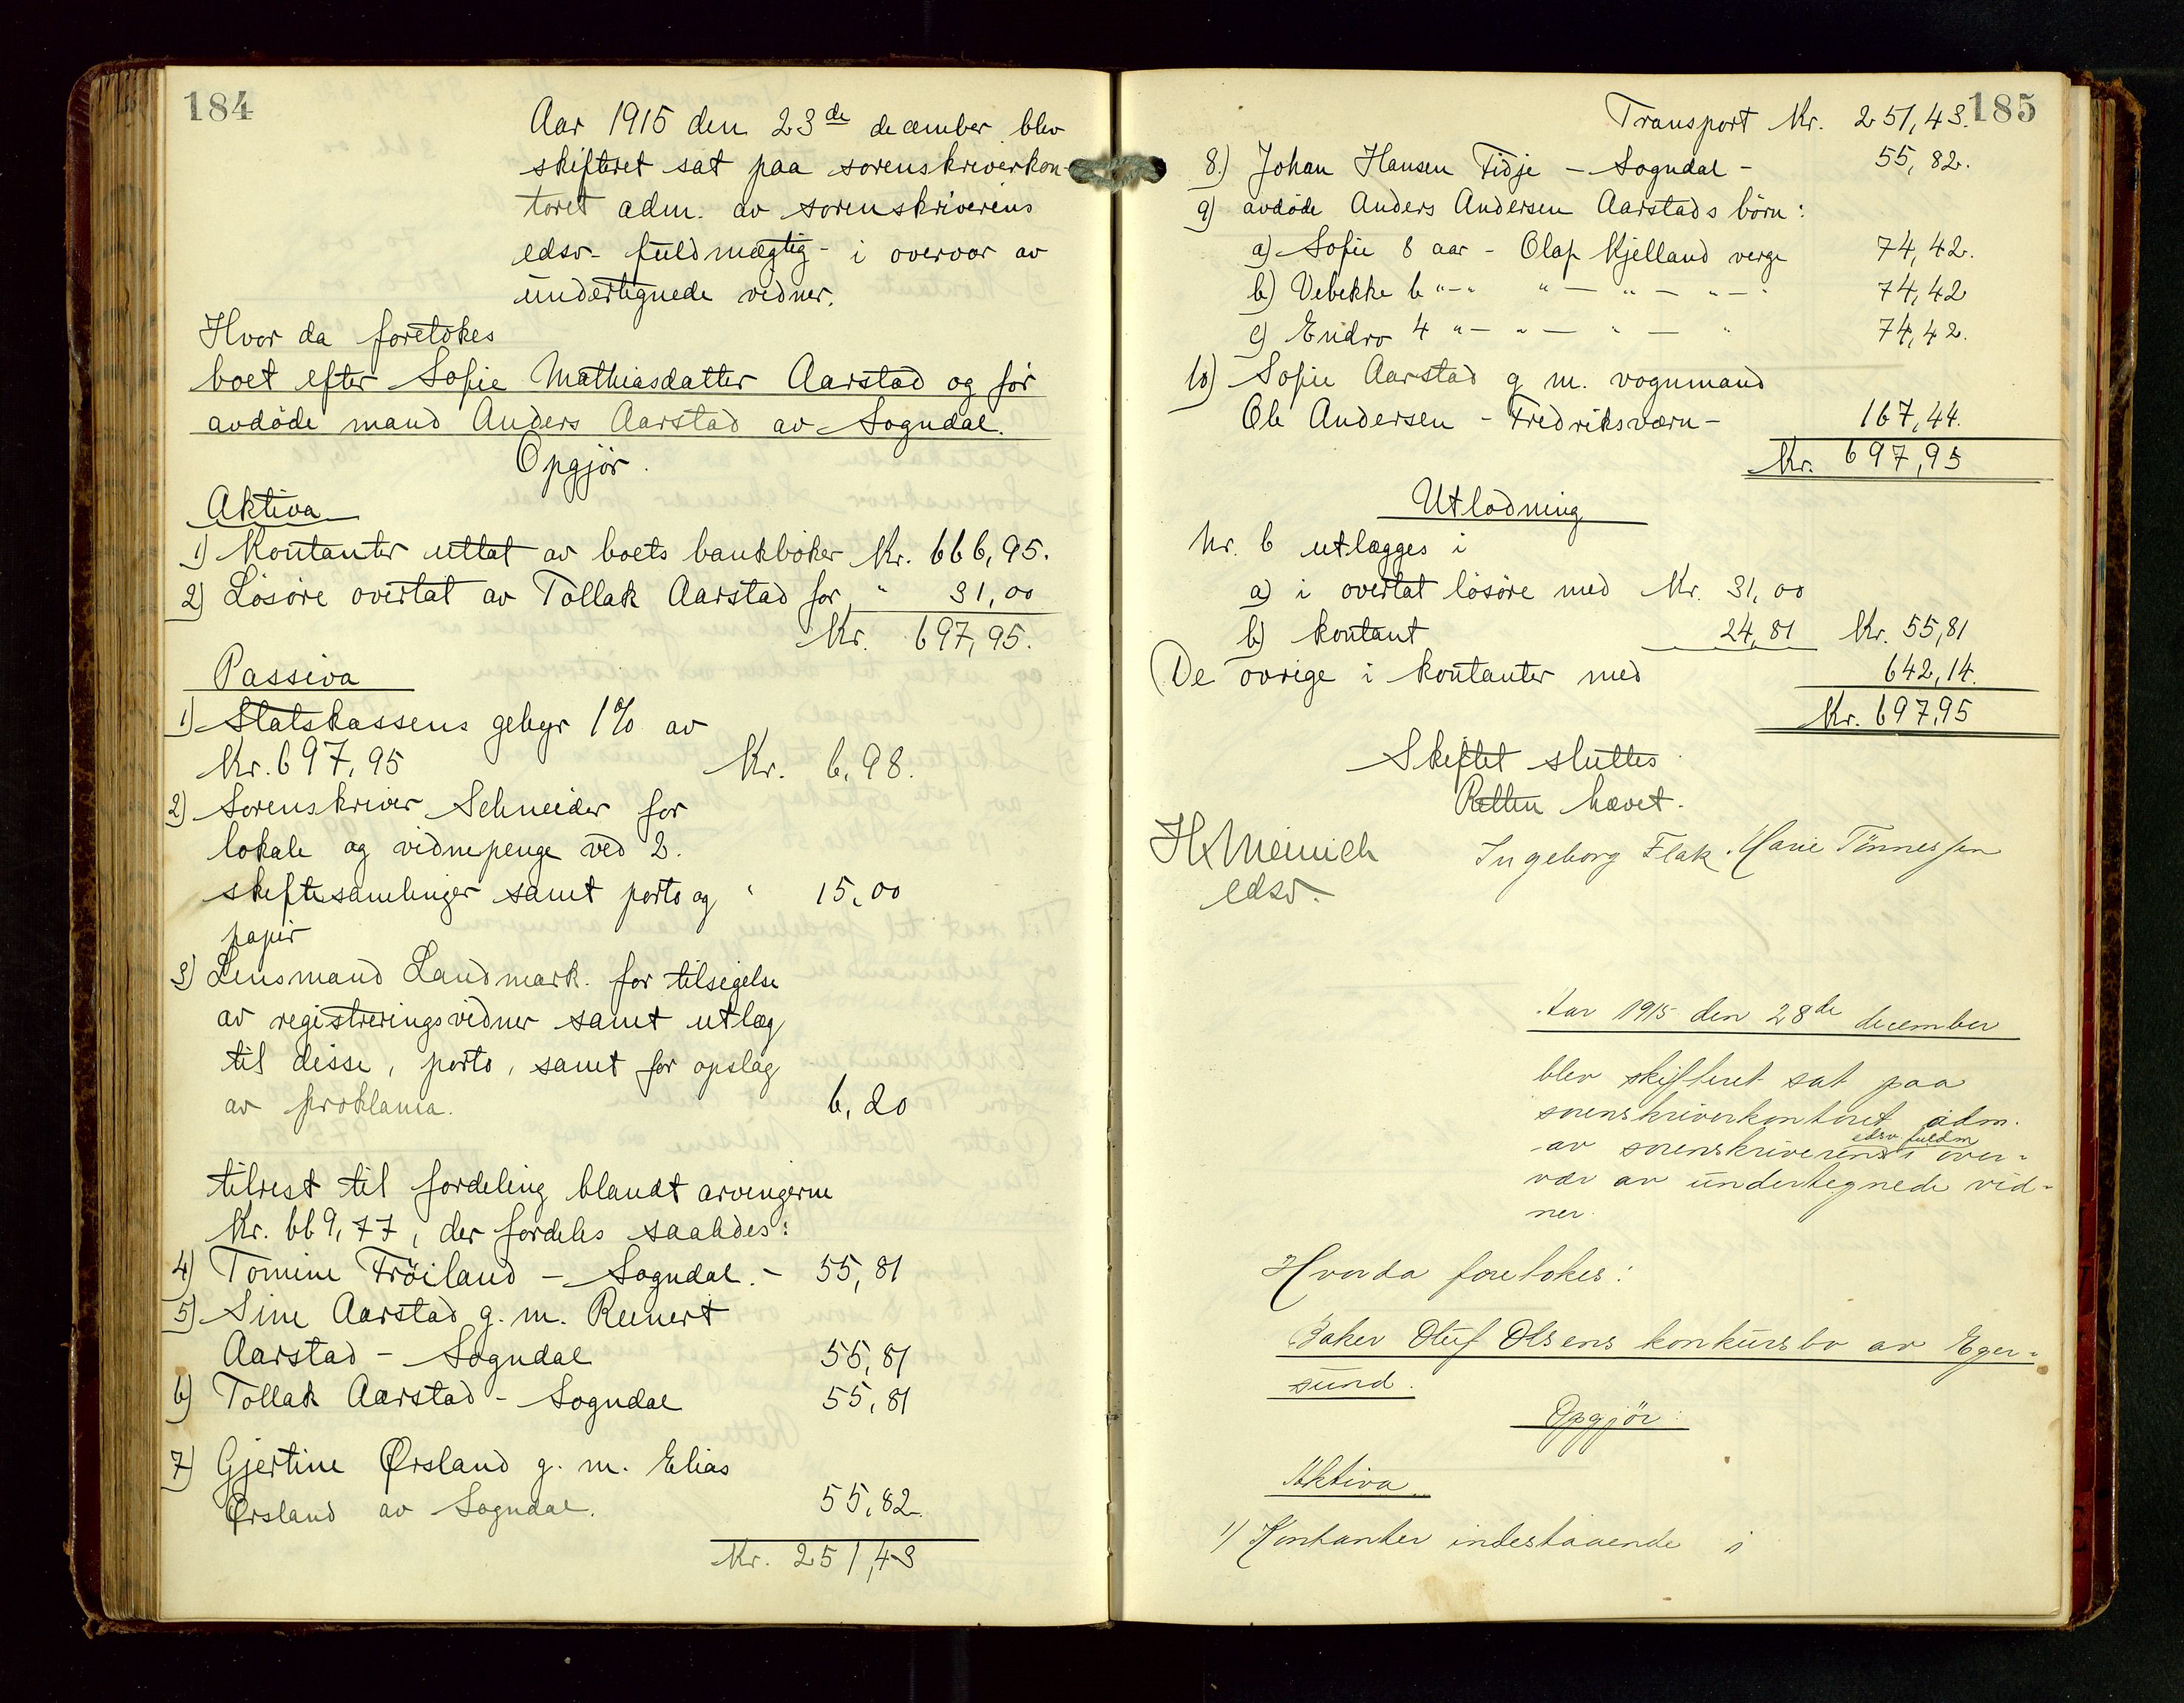 184
Aar 1915 den 23de december blev
skifteret sat paa sorenskriverkon-
toret adm. av sorenskriverens
edsv. fuldmægtig - i overvær av
undertegnede vidner.
Hvor da foretokes
boet efter Sofie Mathiasdatter Aarstad og før
avdøde mand Anders Aarstad av Sogndal.
Opgjør.
Aktiva
1) Kontanter uttat av boets bankbøker Kr. 666,95.
2) Løsøre overtat av Tollak Aarstad for " 31,00
Kr. 697,95.
Passiva
1) Statskassens gebyr 1% av
Kr. 697,95 Kr. 6,98.
2) Sorenskriver Schneider for
lokale og vidnepenge ved 2.
skiftesamlinger samt porto og " 15,00
papir
3) Lensmand Landmark. for tilsigelse
av registreringsvidner samt utlæg
til disse, porto, samt for opslag
av proklama. 6,20
tilrest til fordeling blandt arvingerne
Kr. 669,77, der fordeles saaledes:
4) Tomine Frøiland - Sogndal. - 55,81
5) Sine Aarstad g. m. Reinert
Aarstad - Sogndal 55,81
6) Tollak Aarstad - Sogndal 55,81
7) Gjertine Ørsland g. m. Elias
Ørsland av Sogndal. 55,82
Kr. 251,43
185
Transport Kr. 251,43.
8.) Johan Hansen Fidje - Sogndal - 55,82.
9) avdøde Anders Andersen Aarstads børn:
a) Sofie 8 aar - Olaf Kjelland verge 74,42.
b) Vebekke 6 " - " " - " - " - " 74,42
c) Endro 4 " - " - " - " 74,42.
10) Sofie Aarstad g m. vognmand
Ole Andersen - Fredriksværn - 167,44.
Kr. 697,95
Utlodning
Nr. 6 utlægges i
a) i overtat løsøre med Kr. 31,00
b) kontant 24,81 Kr. 55,81
De øvrige i kontanter med 642,14.
Kr. 697,95
Skiftet sluttes
Retten hævet.
H Meinich Ingeborg Flak. Marie Tønnessen
edsv.
Aar 1915 den 28de december
blev skifteret sat paa
sorenskriverkontoret adm.
av sorenskriverens edsv. fuldm i over-
vær av undertegnede vid-
ner.
Hvorda foretokes:
Baker Oluf Olsens konkursbo av Eger-
sund.
Opgjør:
Aktiva
1) Kontanter indestaaende i